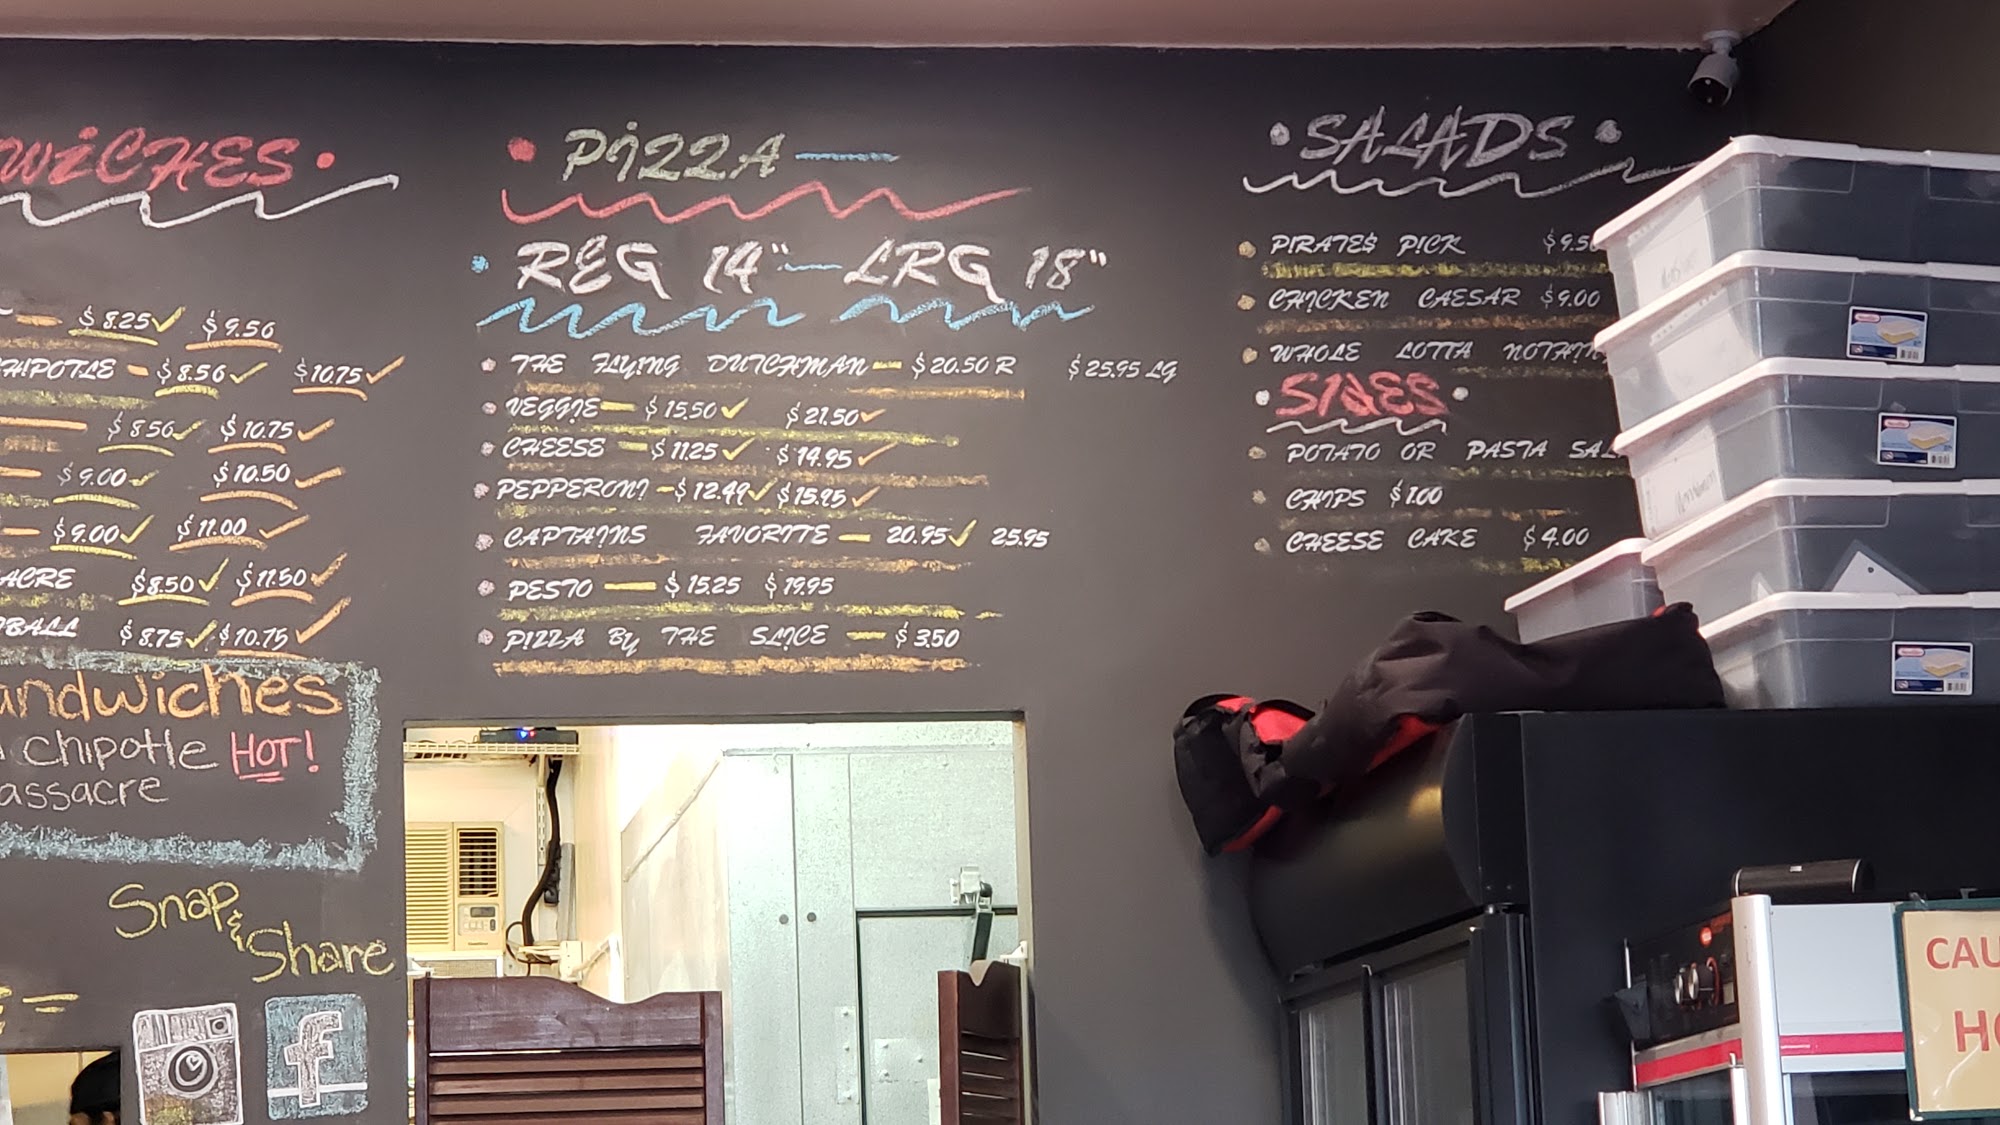 WiCHES
$8.25 $9.50
CHIPOTLE $8.50 $10.75
$8.50 $10.75
$9.00 $10.50
$9.00 $11.00
ACRE $8.50 $11.50
BALL $8.75 $10.75
andwiches
chipotle HOT!
assacre
Snap & Share
f
PiZZA
REG 14" - LRG 18"
THE FLYING DUTCHMAN - $20.50 R $25.95 LG
VEGGIE - $15.50 $21.50
CHEESE - $11.25 $14.95
PEPPERONI - $12.49 $15.95
CAPTAINS FAVORITE - 20.95 25.95
PESTO - $15.25 $19.95
PIZZA BY THE SLICE - $3.50
SALADS
PIRATE$ PICK $9.50
CHICKEN CAESAR $9.00
WHOLE LOTTA NOTHIN
SIDES
POTATO OR PASTA SAL
CHIPS $1.00
CHEESE CAKE $4.00
CAU
HO